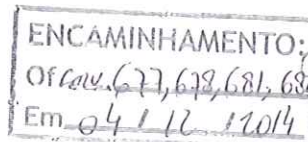 ENCAMINHAMENTO:
Of 677, 678, 681, 68
Em 04 / 12 / 2014